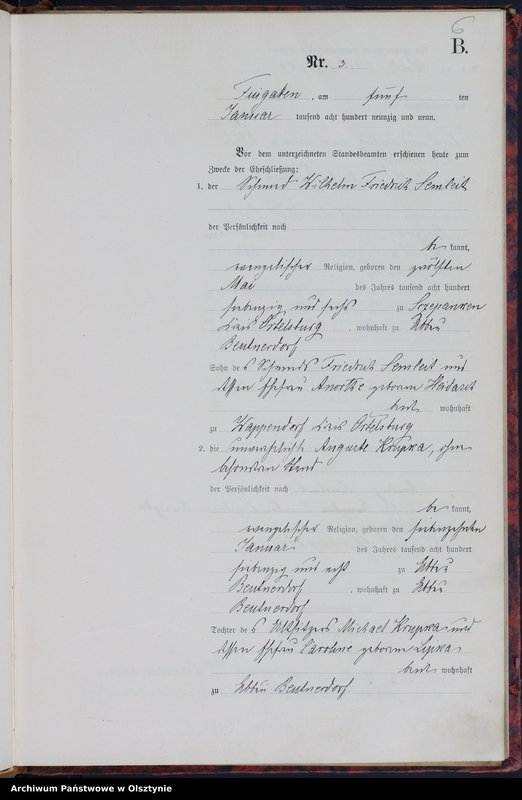 6
B.
Nr. 3
am fünf ten
Januar tausend acht hundert neunzig und neun.
Vor dem unterzeichneten Standesbeamten erschienen heute zum
Zwecke der Eheschließung:
1. der Schmied Wilhelm Friedrich Semleit
der Persönlichkeit nach
be kannt,
evangelischer Religion, geboren den zwölften
Mai des Jahres tausend acht hundert
siebenzig und sechs zu Sczepanken
Kreis Ortelsburg, wohnhaft zu
Beutnerdorf
Sohn des Schmieds Friedrich Semleit und
dessen Ehefrau geborene
beide wohnhaft
zu Wappendorf Kreis Ortelsburg
2. die unverehelichte Auguste Krupka, ohne
besonderen Stand
der Persönlichkeit nach
be kannt,
evangelischer Religion, geboren den siebenzehnten
Januar des Jahres tausend acht hundert
siebenzig und acht zu
Beutnerdorf, wohnhaft zu
Beutnerdorf
Tochter des Altsitzers Michael Krupka und
dessen Ehefrau Caroline geborene Lipka
beide wohnhaft
zu Beutnerdorf
Archiwum Państwowe w Olsztynie